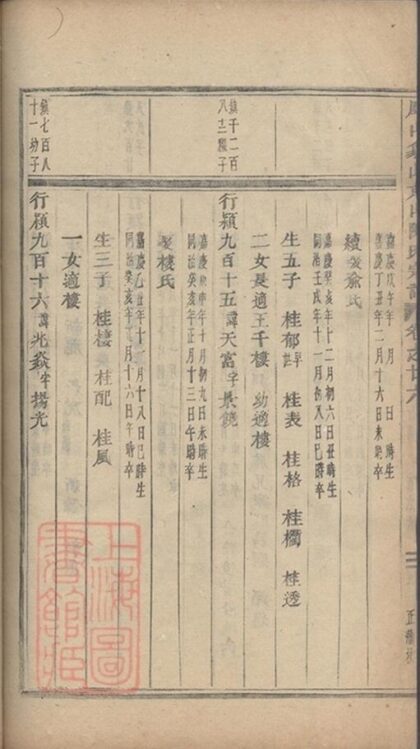 嘉慶戊午年 月 日 時生
嘉慶丁丑年二月十六日未時卒
續娶俞氏
嘉慶癸亥年十二月初六日丑時生
同治壬戌年十一月初八日巳時卒
生五子 桂郁早世 桂表 桂格 桂欄 桂透
二女長適王千樓 幼適樓
鎮千二百八三種子
行穎九百十五諱天富字長鏡
嘉慶 申年十月初九日未時生
同治癸亥年正月十三日午時卒
娶樓氏
嘉慶乙丑年十一月十八日巳時生
同治癸亥年 月十六日午時卒
生三子 桂棲 桂配 桂風
一女適樓
鎮七百八十一幼子
行穎九百十六諱兆焱字揚光
上海圖書館藏